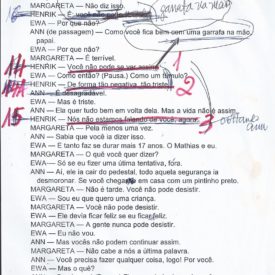 MARGARETA — Não diz isso.
6 HENRIK — E você não pode
garrafa na mão
EWA — Por que não?
ANN (de passagem) — Como você fica bem com uma garrafa na mão,
papai.
EWA — Por que não?
MARGARETA — É terrível.
HENRIK — Você não pode se ver assim. 1
EWA — Como então? (Pausa.) Como um túmulo?
14 HENRIK — De forma tão negativa, tão triste. 2
ANN — É desagradável.
EWA — Mas é triste.
ANN — Ela quer tudo bem em volta dela. Mas a vida não é assim.
15 HENRIK — Nós não estamos falando de você, agora. 3
MARGARETA — Pela menos uma vez.
ANN — Sabia que você ia dizer isso.
EWA — E tanto faz se durar mais 17 anos. O Mathias e eu.
MARGARETA — O quê você quer dizer?
EWA — Só se eu fizer uma última tentativa, fora.
ANN — Aí, ele ia cair do pedestal, todo aquela segurança ia
desmoronar. Se você chegar em casa com um pintinho preto.
MARGARETA — Não é tarde. Você não pode desistir.
EWA — Sou eu que quero uma criança.
MARGARETA — Você não pode desistir.
EWA — Ele devia ficar feliz se eu ficar feliz.
MARGARETA — A gente nunca pode desistir.
EWA — Eu não vou.
ANN — Mas vocês não podem continuar assim.
MARGARETA — Não cabe a nós a última palavra.
ANN — Você precisa fazer qualquer coisa, logo! Por você.
EWA — Mas o quê?